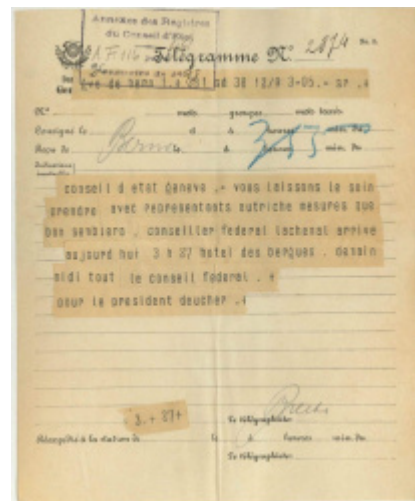 Annexes des Registres
du Conseil d'Etat
Télégramme N° 2874
N° mots groupes mots taxés
Consigné le à heures min. du
Reçu de Berne le à 3 55 heures min. du
conseil d etat genève .- vous laissons le soin
prendre avec representants autriche mesures que
bon semblera . conseiller federal lachenal arrive
aujourd hui 3 h 27 hotel des bergues . demain
midi tout le conseil federal .+
pour le president deucher .+
Le télégraphiste:
Réexpédié à la station de le à heures min. du
Le télégraphiste: